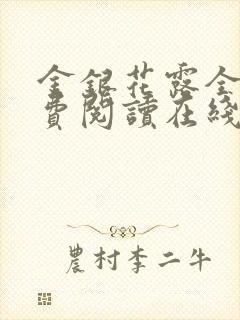 金銀花露全
費閱讀在綫
農村李二牛